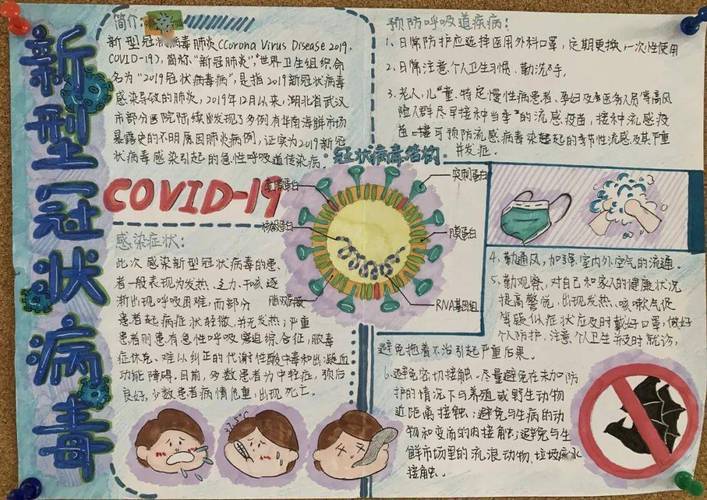 新型冠状病毒
简介:
新型冠状病毒肺炎(Corona Virus Disease 2019,
COVID-19),简称"新冠肺炎",世界卫生组织命
名为"2019冠状病毒病",是指2019新型冠状病毒
感染导致的肺炎,2019年12月以来,湖北省武汉
市部分医院陆续发现了多例有华南海鲜市场
暴露史的不明原因肺炎病例,证实为2019新冠
状病毒感染引起的急性呼吸道传染病。
COVID-19
感染症状:
此次感染新型冠状病毒的患
者一般表现为发热、乏力、干咳逐
渐出现呼吸困难,而部分
患者起病症状轻微,并无发热;严重
患者则患有急性呼吸窘迫综合征,脓毒
症休克、难以纠正的代谢性酸中毒和出凝血
功能障碍。目前,多数患者为中轻症,预后
良好,少数患者病情危重,出现死亡。
冠状病毒结构
刺突蛋白
膜蛋白
RNA基因组
预防呼吸道疾病:
1、日常防护应选择医用外科口罩,定期更换,一次性使用
2、日常注意个人卫生习惯,勤洗手。
3、老人、儿童、特定慢性病患者、孕妇及医务人员等高风
险人群尽早接种当季的流感疫苗,接种流感疫
苗可预防流感病毒引起的季节性流感及其严重
并发症。
4、勤通风,加强室内外空气的流通。
5、勤观察,对自己和家人的健康状况
提高警觉,出现发热、咳嗽气促
等疑似症状应及时戴好口罩,做好
个人防护,注意个人卫生并及时就诊,
避免拖着不治引起严重后果。
6、避免密切接触。尽量避免在未加防
护的情况下与养殖或野生动物
近距离接触;避免与生病的动
物和变质的肉接触;避免与生
鲜市场里的流浪动物、垃圾废水
接触。